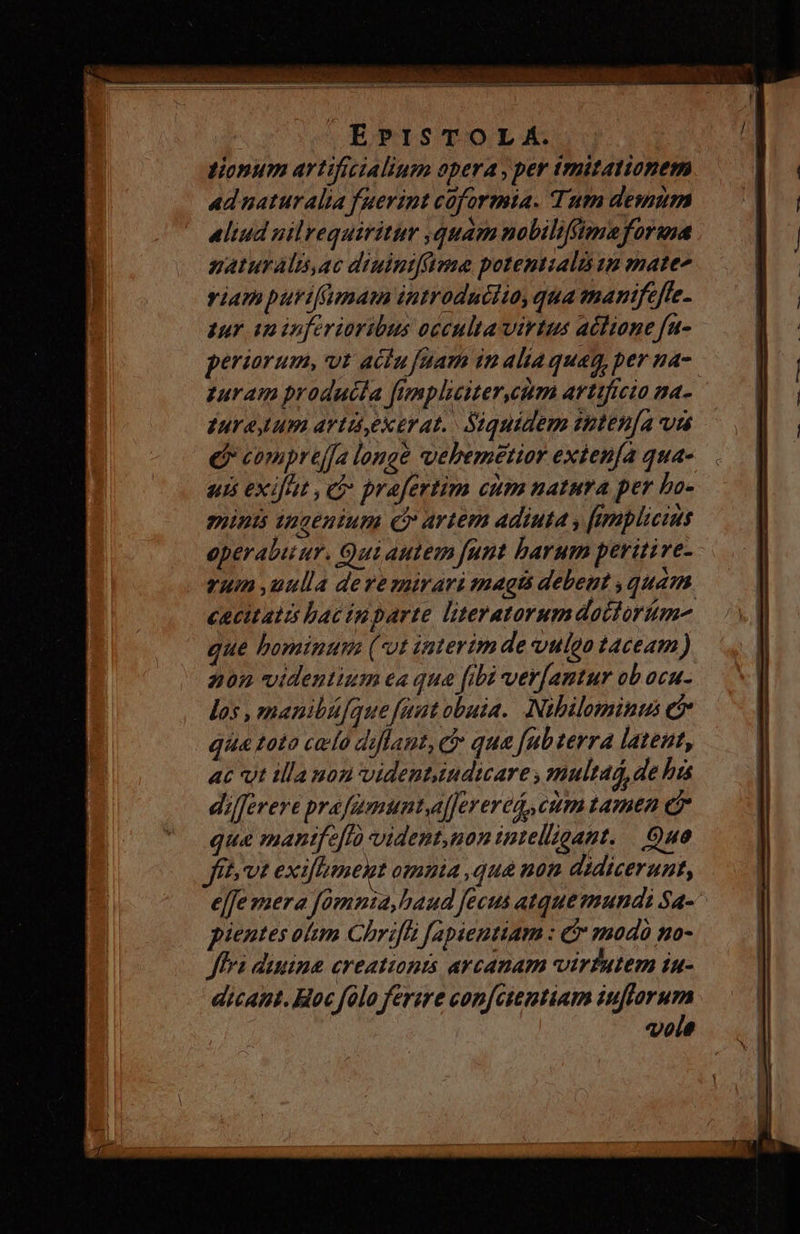 EPISTOLA.
tionum artificialium opera, per imitationem
ad naturalia fuerint cōformia. Tum demùm
aliud nil requiritur, quàm nobilißima forma
naturalis, ac diuinißima potentialis in mate-
riam purißimam introductio, qua manifeste-
tur in inferioribus occulta virtus actione su-
periorum, vt actu suam in alia quæq́; per na-
turam producta simpliciter, cùm artificio na-
turæ, tum artis, exerat. Siquidem intensa vis
& compressa longè vehemētior extensa qua-
uis existit, & præsertim cùm natura per ho-
minis ingenium & artem adiuta, simplicius
operabitur. Qui autem sunt harum peritì re-
rum, nulla de re mirari magis debent, quàm
cæcitatis hac in parte literatorum doctorúm-
que hominum (vt interim de vulgo taceam)
non videntium ea quæ sibi versantur ob ocu-
los, manibúsque sunt obuia. Nihilominus &
quæ toto cælo distant, & quæ sub terra latent,
ac vt illa non vident, iudicare, multaq́; de his
differere præsumunt, asserereq́;, cùm tamen &
quæ manifestò vident, non intelligant. Quo
fit, vt existiment omnia, quæ non didicerunt,
esse mera somnia, haud secus atque mundi Sa-
pientes olim Christi sapientiam: & modò no-
stri diuinæ creationis arcanam virtutem iu-
dicant. Hoc solo ferire conscientiam iustorum
volo